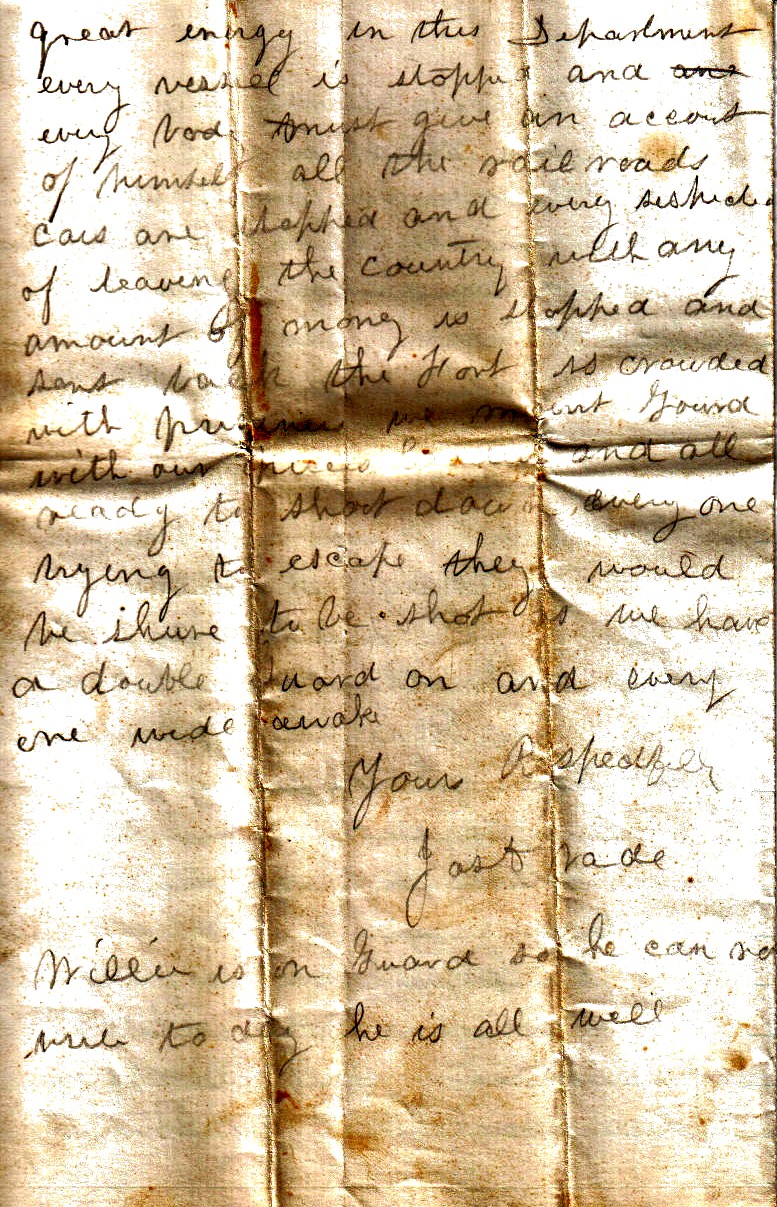 great energy in this Department
every vessel is stopped and ant
every bod must give an account
of himself all the railroads
cars are stopped and every
of leaveing the country with any
amount of money is stopped and
sent back the Fort is crowded
with we mount Guard
with our and all
ready to shoot down every one
trying to escape they would
be shure to be shot as we have
a double Guard on and every
one wide awake
Yours Respectfully
Jas
Willie is on Guard so he can
to day he is all well